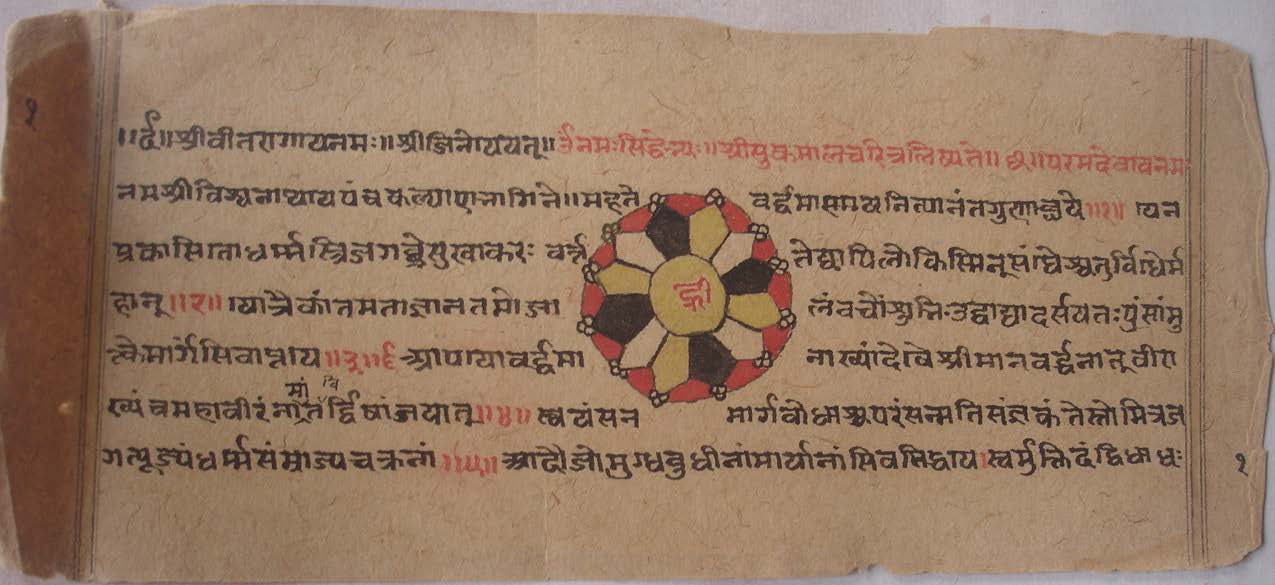 १
॥र्द॥श्रीवीतरागायनमः॥श्रीजिनोययत्॥ उनमःसिद्धेभ्यः॥श्रीसुकमालचरित्रलिष्यते॥छ॥परमदेवायनम
नमश्रीविश्वनाथायपंचकल्याणनागिने॥महते ह्रीं वर्द्धमाण नित्यानंतगुणाब्धये॥१॥ येन
प्रकासितोधर्म्मस्त्रिजग सुखाकरः वर्त्त तेद्यापिलोकेस्मिन्संघेश्चतुर्विधेर्म
हान्॥२॥ योत्रैकांतमताज्ञानतमो लंवचोंशुभिःउद्वाद्यादर्सयतःपुंसांमु
मार्गसिवाप्तय॥३॥ वर्द्धमा नाख्यांदेवेश्रीमानवर्द्धनात्वीरा
ख्यंचमहावीरं मां वि द्विषांजयात्॥४॥ स्वयंसन मार्गवोधाच्चपरंसन्मतिसंज्ञकंतेस्तोमित्रज
गत्पूज्यंधर्म्मसंम्राज्यचक्रनां॥५॥आदौजोमुग्धबुधीनांमार्यानांसिवसिद्धाय।स्वर्मुक्तिदंद्विधाधः
१